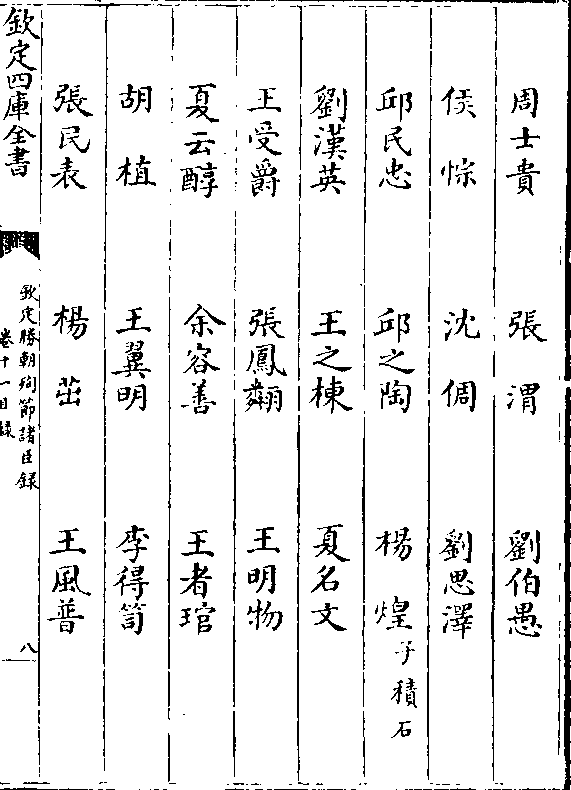 周士貴 張渭 劉伯愚
侯悰 沈倜 劉思澤
邱民忠 邱之陶 楊煌子積石
劉漢英 王之棟 夏名文
王受爵 張鳳翽 王明物
夏云醇 余容善 王者琯
胡植 王翼明 李得笥
張民表 楊茁 王風普
欽定四庫全書
欽定勝朝殉節諸臣錄
卷十一目錄
八